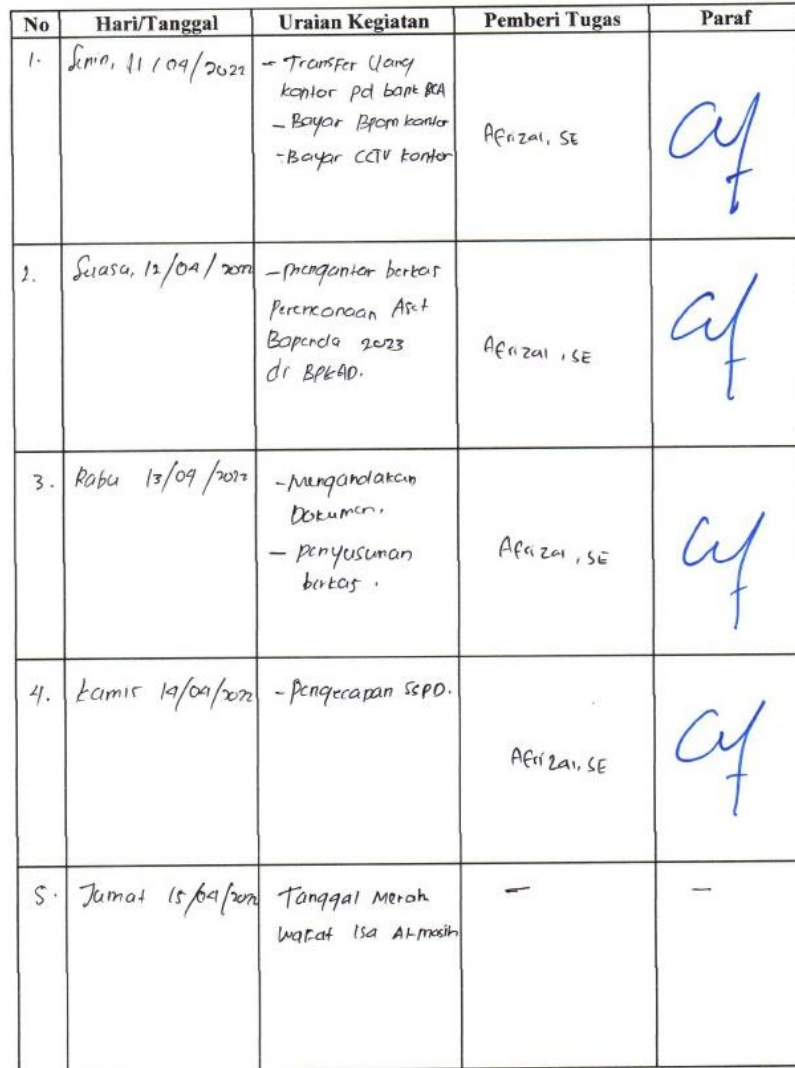 No Hari/Tanggal Uraian Kegiatan Pemberi Tugas Paraf
1. Senin, 11/04/2022 - Transfer Uang
kantor pd bank BCA
- Bayar kantor
- Bayar CCTV kantor
Afrizal, SE
2. Selasa, 12/04/2022 - Mengantar berkas
Perencanaan Aset
Bapenda 2023
di BPKAD.
Afrizal, SE
3. Rabu 13/04/2022 - Mengandakan
Dokumen.
- Penyusunan
berkas.
Afrizal, SE
4. Kamis 14/04/2022 - Pengecapan SSPD.
Afrizal, SE
5. Jumat 15/04/2022 Tanggal Merah - -
Wafat Isa Al-masih